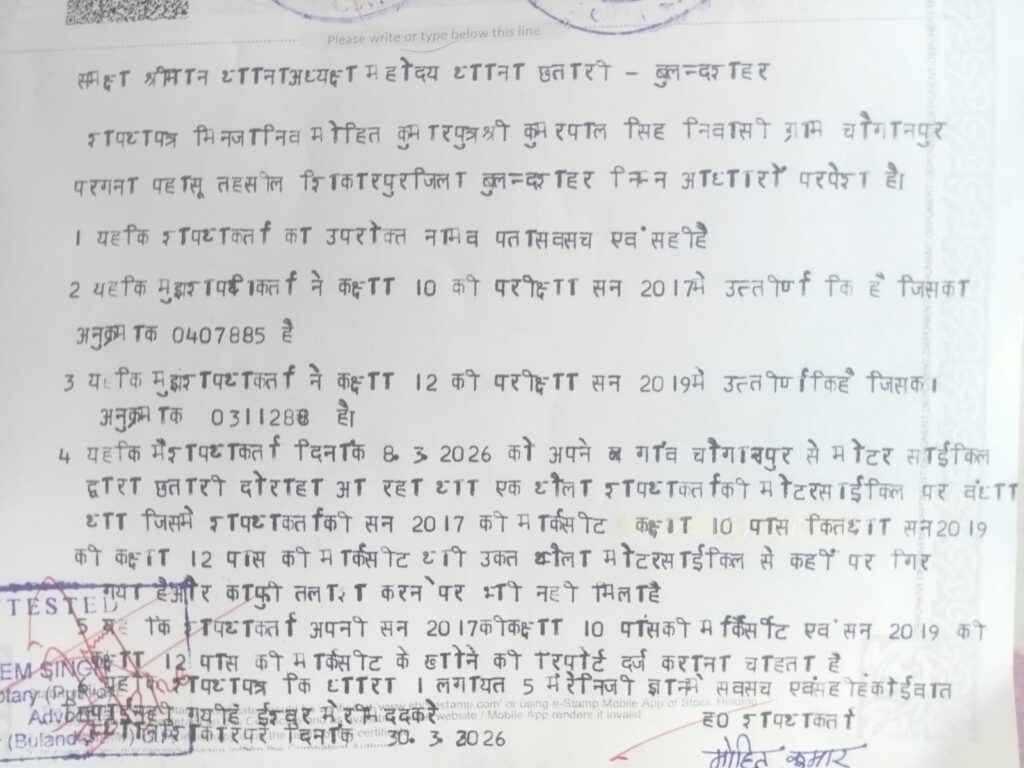 Please write or type below this line
समक्ष श्रीमान थानाअध्यक्ष महोदय थाना छतारी - बुलन्दशहर
शपथपत्र मिनजानिव मोहित कुमारपुत्रश्री कुमरपाल सिंह निवासी ग्राम चौगानपुर
परगना पहासू तहसील शिकारपुरजिला बुलन्दशहर निम्न आधारों परपेश है।
1 यहकि शपथकर्ता का उपरोक्त नामव पतासवसच एवंसहीहै
2 यहकि मुझशपथकर्ता ने कक्षा 10 की परीक्षा सन 2017मे उत्तीर्ण कि है जिसका
अनुक्रमांक 0407885 है
3 यहकि मुझशपथकर्ता ने कक्षा 12 की परीक्षा सन 2019मे उत्तीर्णकिहै जिसका
अनुक्रमांक 0311288 है।
4 यहकि मैशपथकर्ता दिनांक 8.3.2026 को अपने गांव चौगानपुर से मोटर साईकिल
द्वारा छतारी दोराहा आ रहा था एक थैला शपथकर्ताकी मोटरसाईकिल पर वंधा
था जिसमे शपथकर्ताकी सन 2017 की मार्कसीट कक्षा 10 पास कितथा सन2019
की कक्षा 12 पास की मार्कसीट थी उकत थैला मोटरसाईकिल से कहीं पर गिर
गया हैऔर काफी तलाश करने पर भी नही मिलाहै
5 यह कि शपथकर्ता अपनी सन 2017कीकक्षा 10 पासकी मार्कसीट एवं सन 2019 की
कक्षा 12 पास की मार्कसीट के खोने की रिपोर्ट दर्ज कराना चाहता है
यह कि शपथपत्र कि धारा 1 लगायत 5 मेरेनिजी ज्ञानमे सवसच एवंसहीहैकोईवात
गयीहै ईश्वर मेरीमददकरे ह0 शपथकर्ता
दिनांक 30.3.2026
मोहित कुमार
TESTED
EM SINGH
otary (Public)
Advo
(Buland